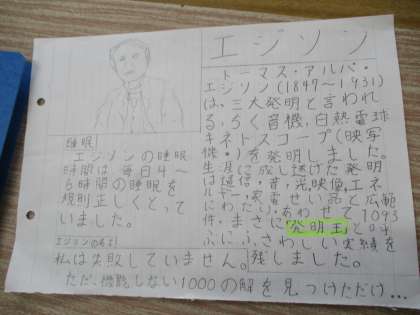 エジソン
トーマス・アルバ・
エジソン(1847〜1931)
は、三大発明と言われ
る、ちく音機、白熱電球
キネトスコープ(映写
機)を発明しました。
生涯に成し遂げた発明
は通信、音、光映像、エネ
わたり、あわせて1093
件、まさに「発明王」と
ふにふさわしい実績を
残しました。
睡眠
エジソンの睡眠
時間は毎日4〜
6時間の睡眠を
規則正しくとって
いました。
エジソンの名言
私は失敗していません。
ただ、機能しない1000の解を見つけただけ…